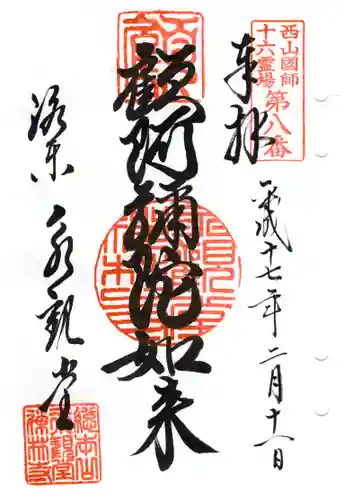 西山國師
十六霊場
第八番
奉拝
平成十七年二月十八日
顧阿彌陀如来
洛東 永観堂
總本山
永観堂
禅林寺